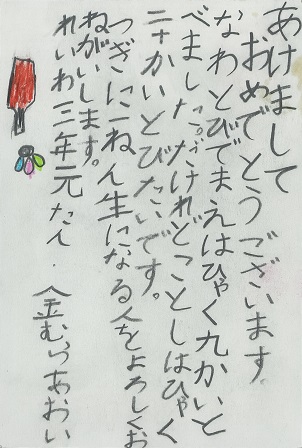 あけまして
おめでとうございます。
なわとびでまえはひゃく九かいと
べました。だけれどことしはひゃく
二十かいとびたいです。
つぎに一ねん生になる人をよろしくお
ねがいします。
れいわ三年元たん・金むらあおい